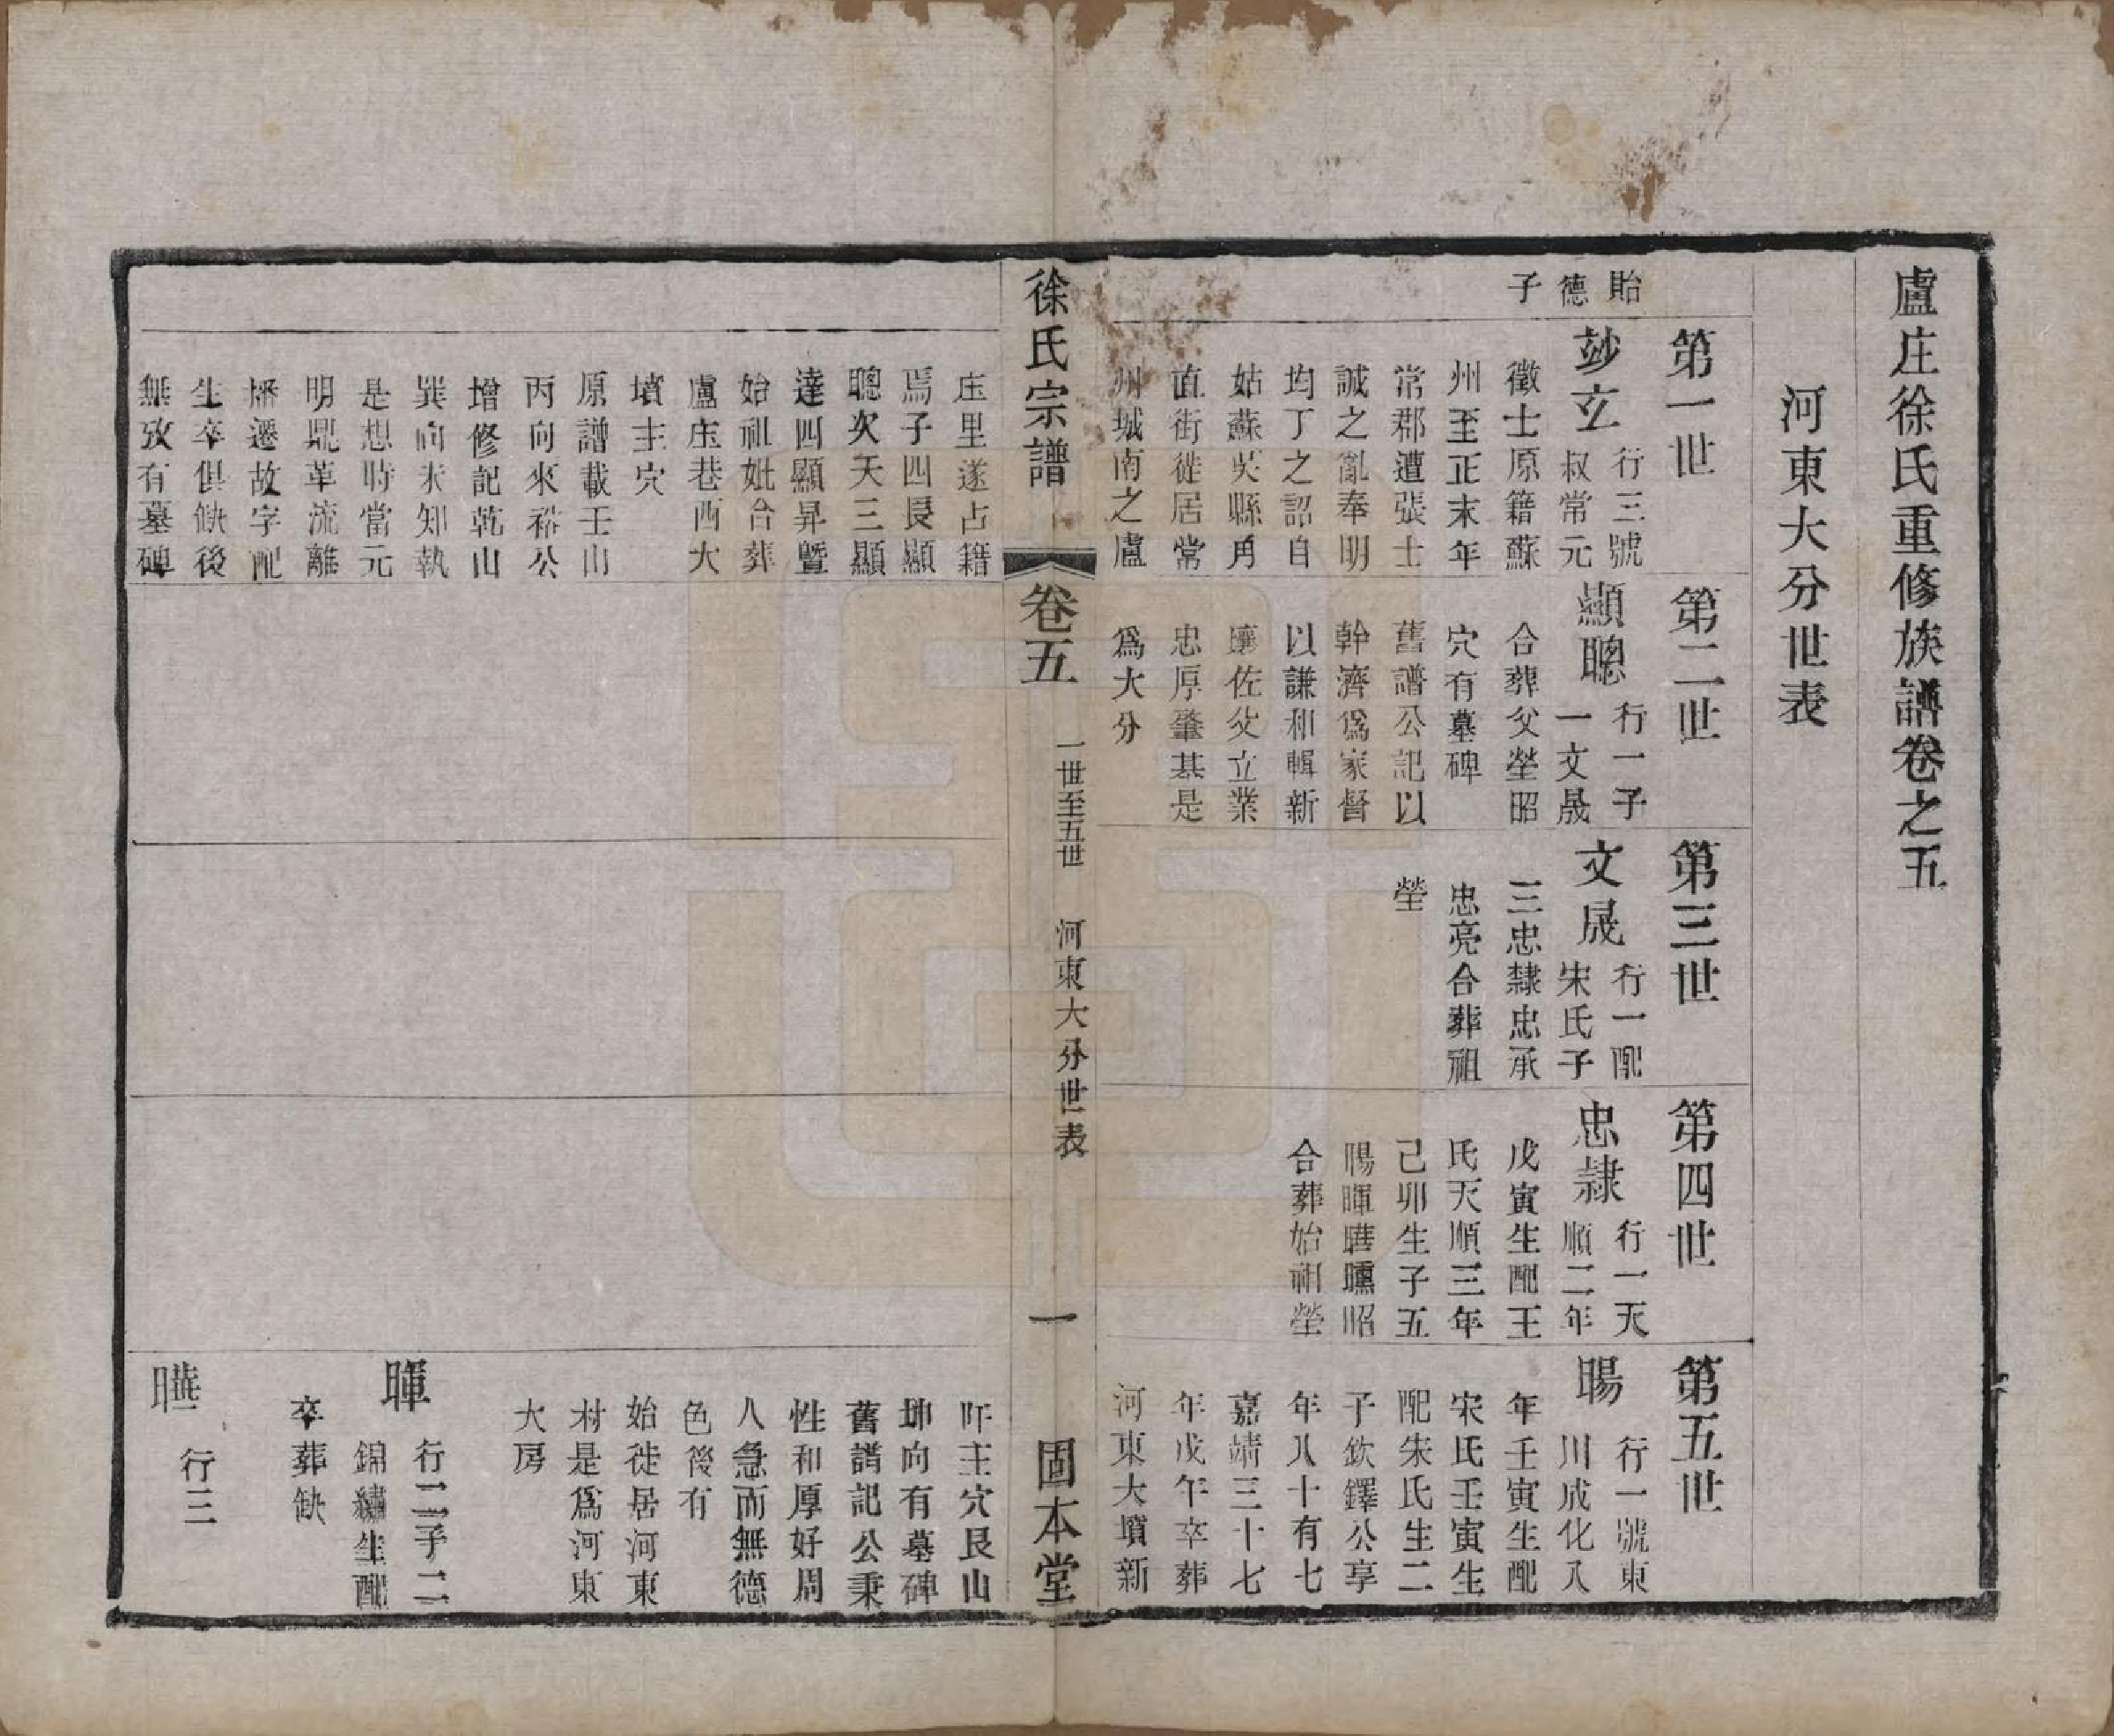 盧庄徐氏重修族譜卷之五
河東大分世表
貽
德
子
第一世
玅玄
行三號
叔常元
徵士原籍蘇
州至正末年
常郡遭張士
誠之亂奉明
均丁之詔自
姑蘇吳縣甪
直街徙居常
州城南之盧
第二世
顯聰
行一子
一文晟
合葬父塋昭
穴有墓碑
舊譜公記以
幹濟爲家督
以謙和輯新
讓佐父立業
忠厚肇基是
爲大分
第三世
文晟
行一配
宋氏子
三忠隸忠承
忠亮合葬祖
塋
第四世
忠隸
行一天
順二年
戊寅生配王
氏天順三年
己卯生子五
暘暉曄曛昭
合葬始祖塋
第五世
暘
行一號東
川成化八
年壬寅生配
宋氏壬寅生
配朱氏生二
子欽鐸公享
年八十有七
嘉靖三十七
年戊午卒葬
河東大墳新
徐氏宗譜
卷五
一世至五世
河東大分世表
一
固本堂
庄里遂占籍
焉子四長顯
聰次天三顯
達四顯昇暨
始祖妣合葬
盧庄巷西大
墳主穴
原譜載壬山
丙向來裕公
增修記乾山
巽向未知孰
是想時當元
明鼎革流離
播遷故字配
生卒俱缺後
無攷有墓碑
阡主穴艮山
坤向有墓碑
舊譜記公秉
性和厚好周
人急而無德
色後有
始徙居河東
村是爲河東
大房
暉
行二子二
錦繡生配
卒葬缺
曄
行三